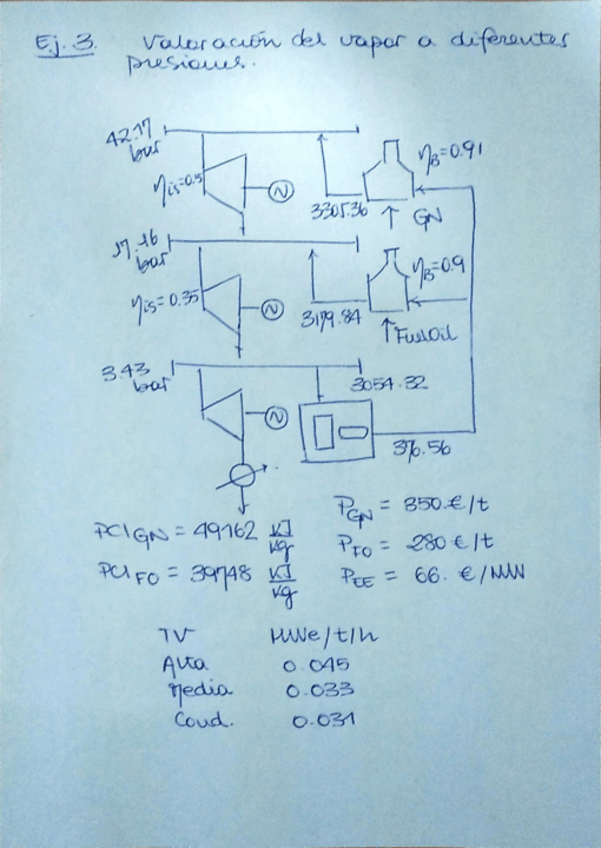 Ej. 3. Valoración del vapor a diferentes
presiones.
42.17
bar
ηis=0.5
N
3305.36
ηB=0.91
GN
17.16
bar
ηis=0.35
N
3179.84
ηB=0.9
FuelOil
3.43
bar
N
3054.32
376.56
PCI GN = 49162 KJ/kg
PCI FO = 39748 KJ/kg
PGN = 350 €/t
PFO = 280 €/t
PEE = 66. €/MW
TV MWe/t/h
Alta 0.045
Media 0.033
Cond. 0.031